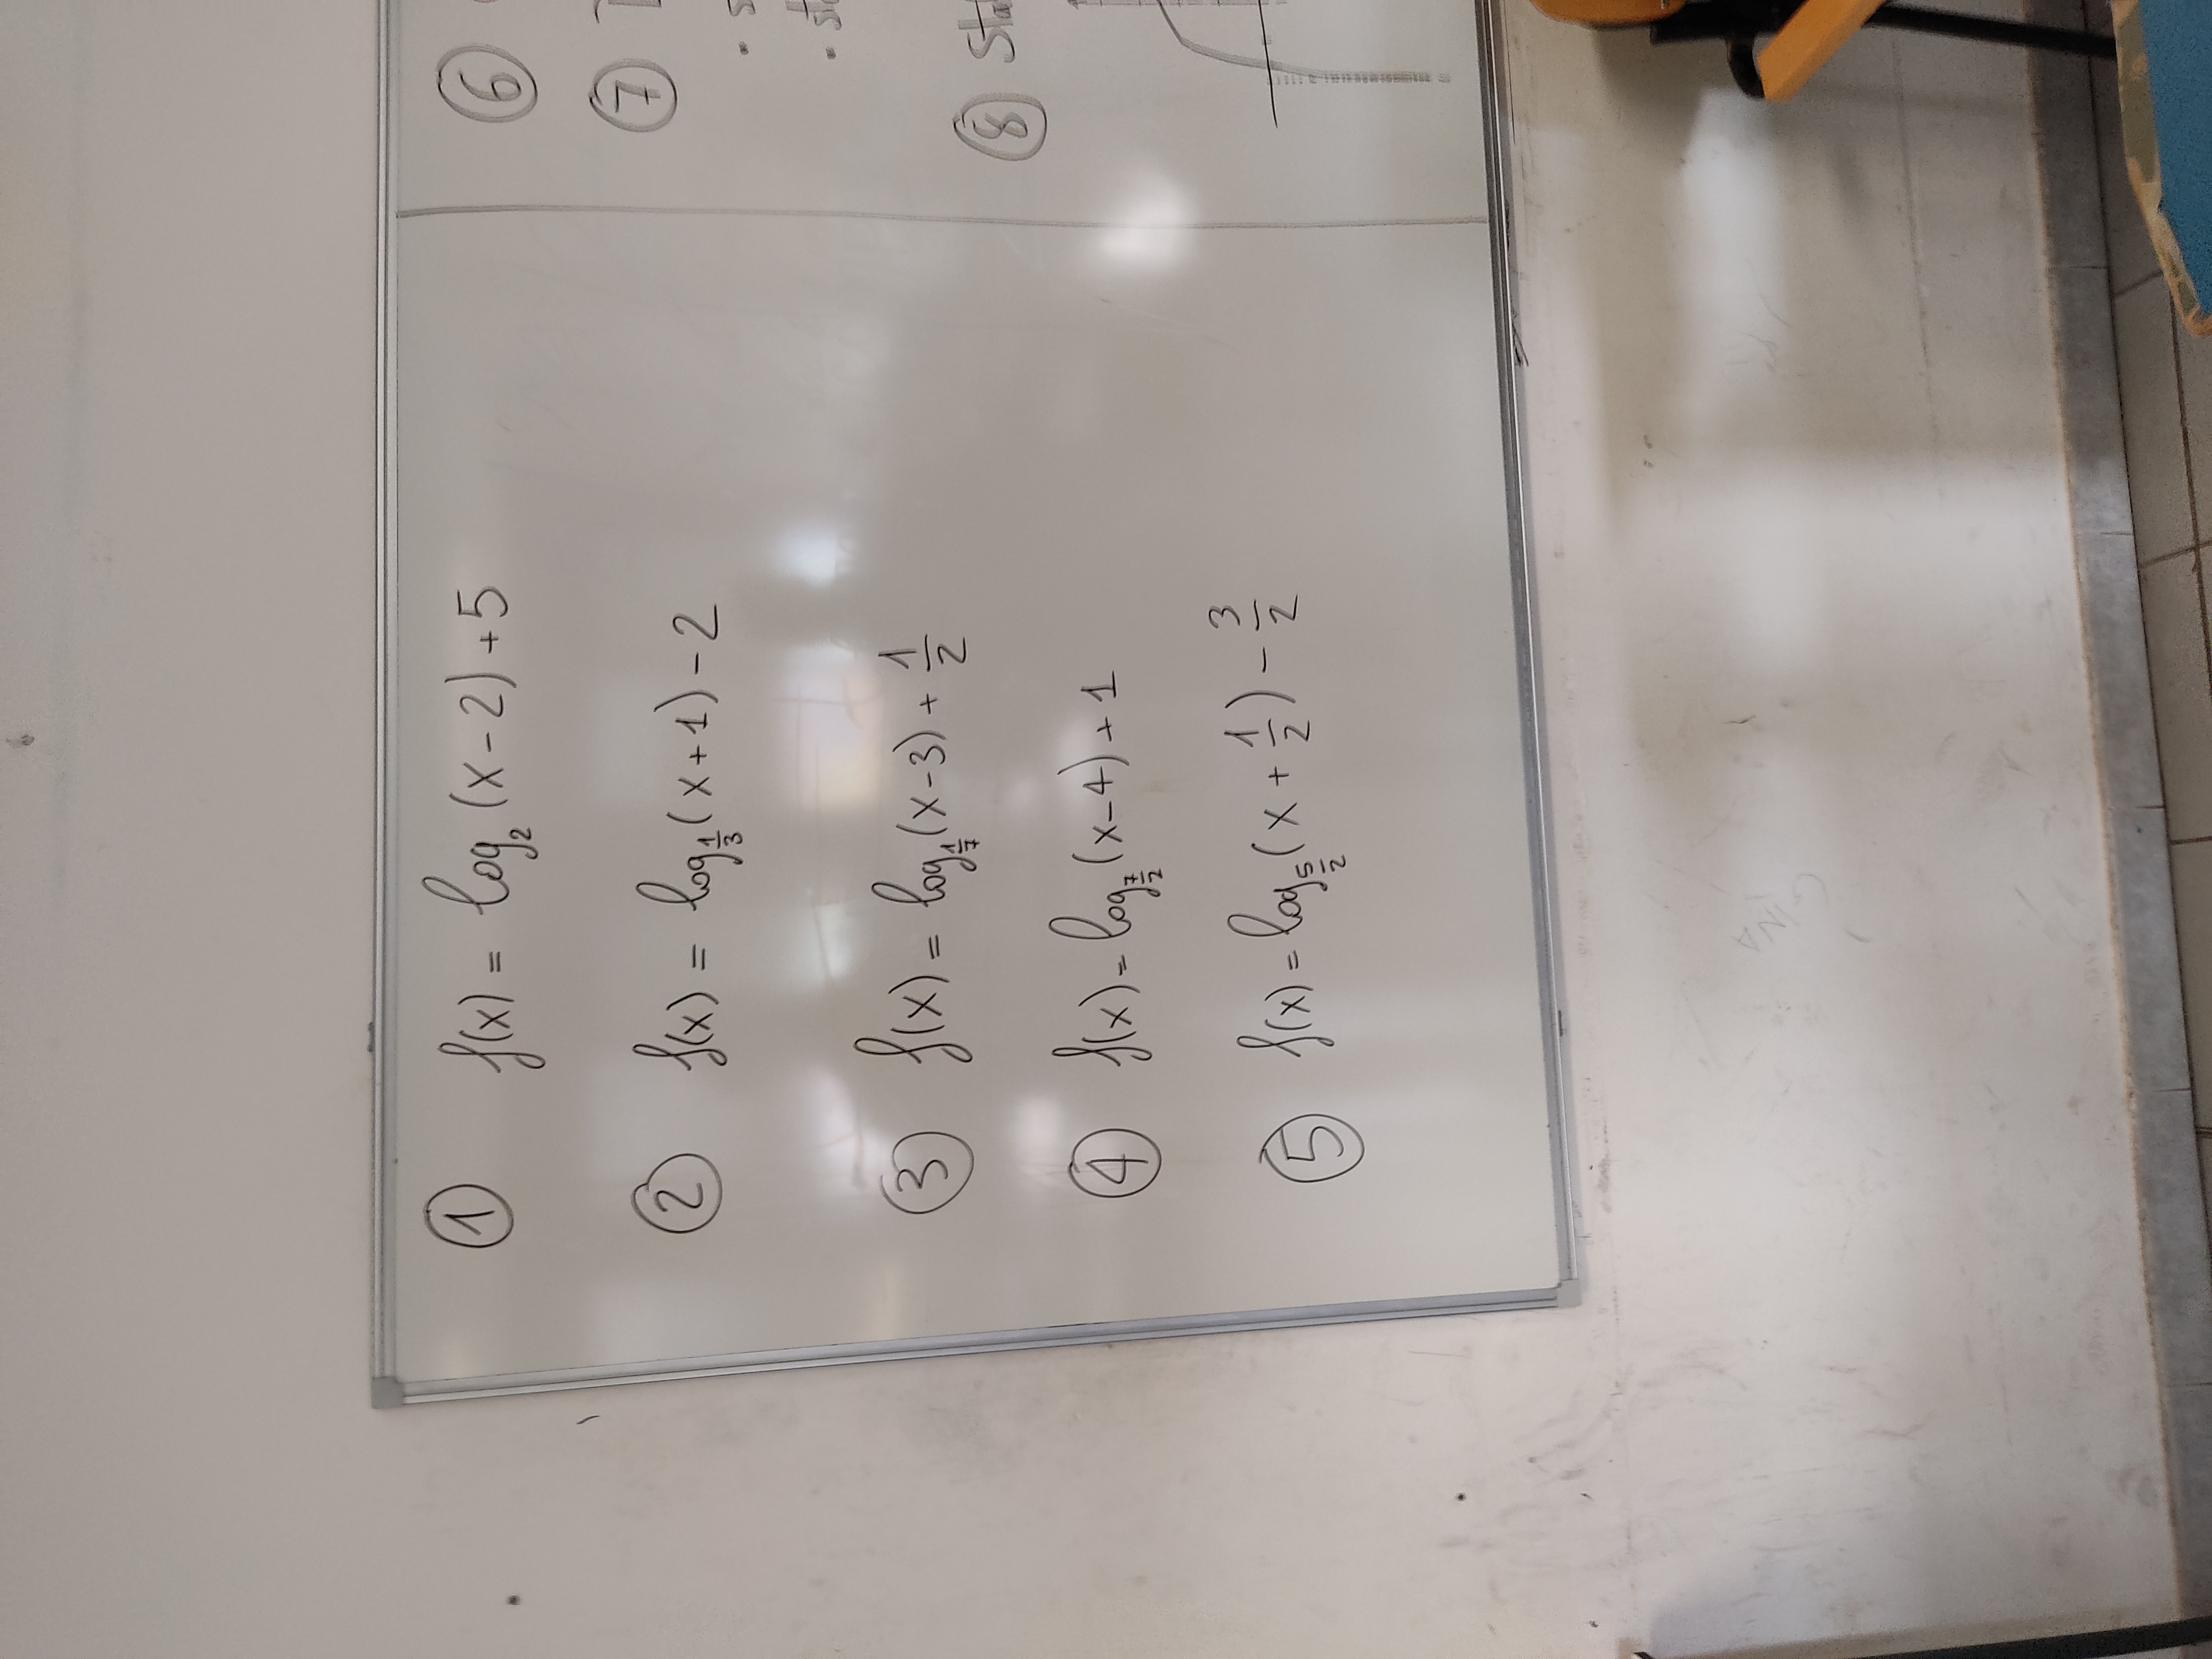 ① f(x) = log₂ (x-2) + 5
② f(x) = log_{1/3} (x+1) - 2
③ f(x) = log_{1/7} (x-3) + 1/2
④ f(x) = log_{7/2} (x-4) + 1
⑤ f(x) = log_{5/2} (x + 1/2) - 3/2
⑥
⑦
⑧